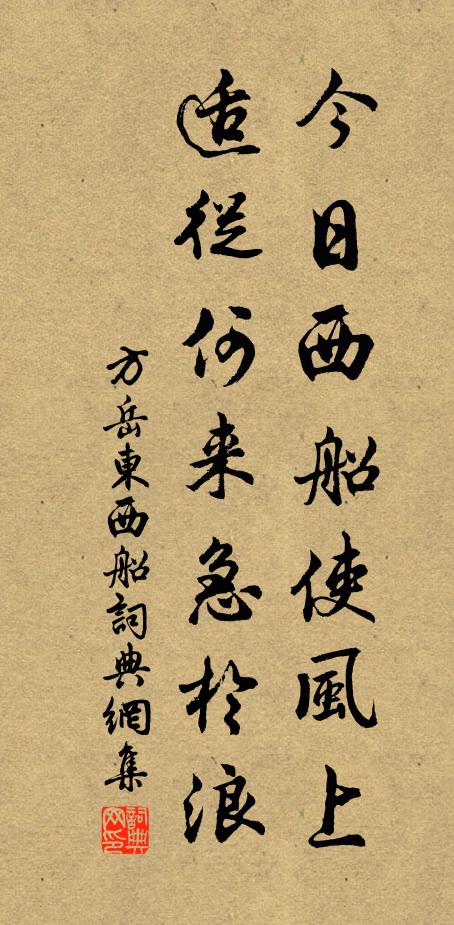 今日西船使風上
適從何来急於浪
方岳東西船詞典網集
詞典網印